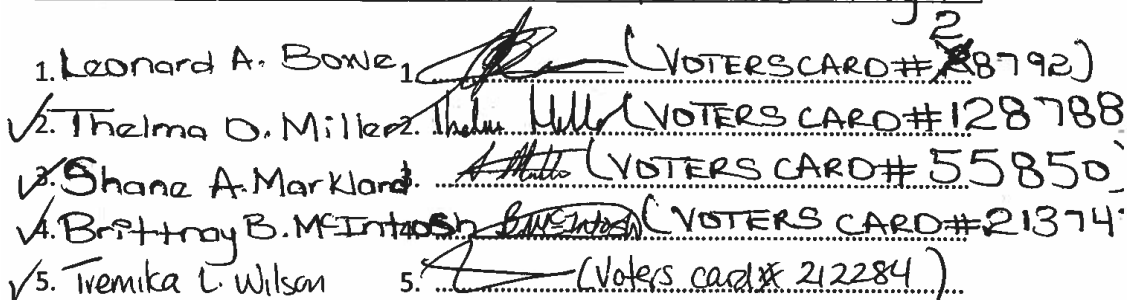 1. Leonard A. Bowe 1. (VOTERS CARD# 28792)
✓2. Thelma O. Miller 2. Thelma Miller (VOTERS CARD# 128788
✓3. Shane A. Markland 3. (VOTERS CARD# 55850)
✓4. Brittnay B. McIntosh B. McIntosh (VOTERS CARD# 21374
✓5. Tremika L. Wilson 5. (Voters card# 212284)